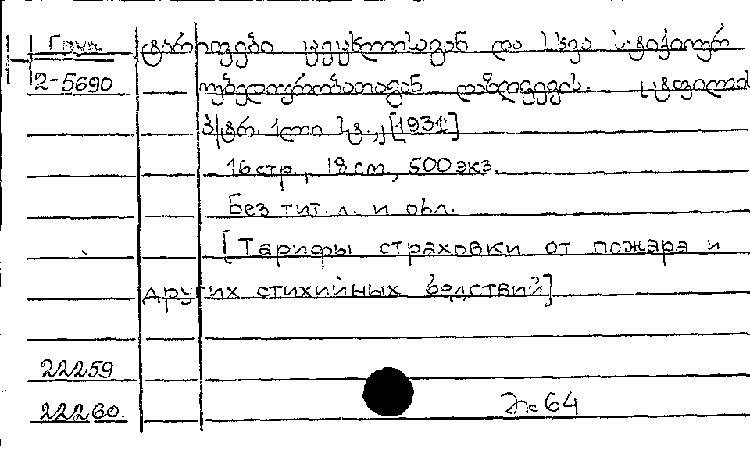 Груз. ტარიფები ცეცხლისაგან და სხვა სტიქიურ
2-5690 უბედურობათაგან დაზღვევის.
[1931]
16 стр., 18 см, 500 экз.
Без тит. л. и обл.
[Тарифы страховки от пожара и
других стихийных бедствий]
22259
22260. № 64